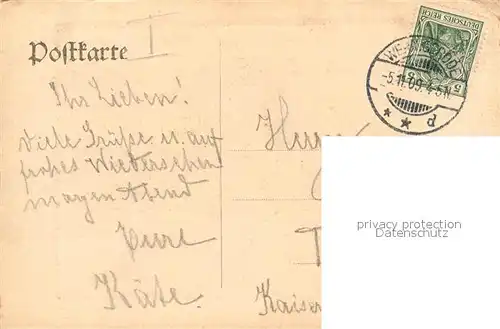 Postkarte I
DEUTSCHES REICH
5 5
-5.11.09. 4-5N.
* * d
Ihr Lieben!
Viele Grüße u. auf
frohes Wiedersehen
morgen Abend
Eure
Käte.
Kaiser
privacy protection
Datenschutz